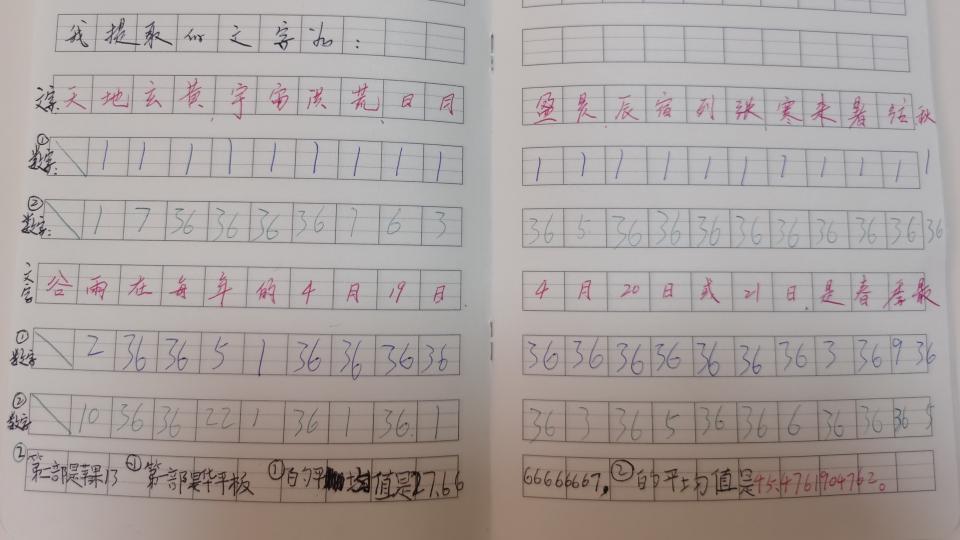 我提取的文字如：
文字：天地玄黄宇宙洪荒日月
数字①：1 1 1 1 1 1 1 1 1
数字②：1 7 36 36 36 36 1 6 3
文字谷雨在每年的4月19日
数字①2 36 36 5 1 36 36 36 36
数字②10 36 36 22 1 36 1 36 1
②第二部是苹果13 ①第一部是华平板 ①的平均值是27.66
盈昃辰宿列张寒来暑往秋
1 1 1 1 1 1 1 1 1 1 1
36 5 36 36 36 36 36 36 36 36 36
4月20日或21日，是春季最
36 36 36 36 36 36 36 3 36 9 36
36 3 36 5 36 36 6 36 36 36 5
66666667，②的平均值是45.4761904762。